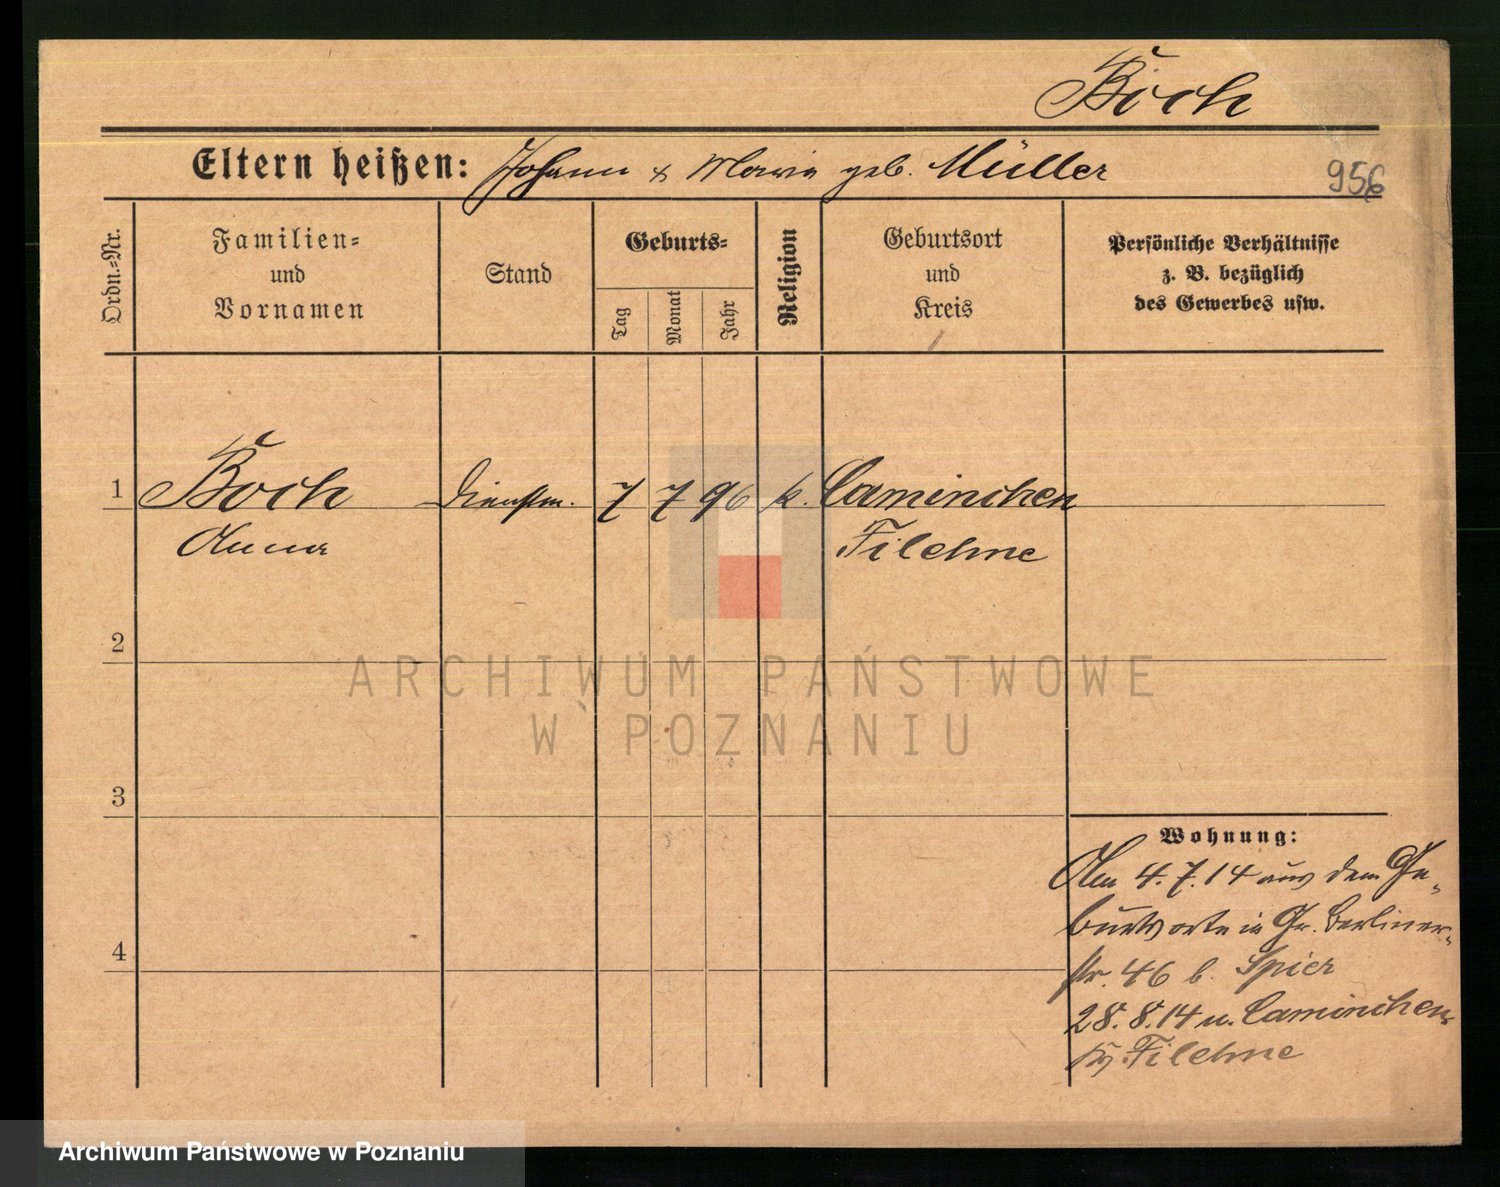 Boch
Eltern heißen: Johann & Maria geb. Müller
956
Ordn.-Nr.
Familien-
und
Vornamen
Stand
Geburts-
Tag
Monat
Jahr
Religion
Geburtsort
und
Kreis
Persönliche Verhältnisse
z. B. bezüglich
des Gewerbes usw.
1 Boch Dienstm. 7 7 96 k. Caminchen
Anna Filehne
2
3
4
Wohnung:
Am 4.7.14 aus dem Ge-
burtsorte in Gr. Berliner-
str. 46 b. Spier
28.8.14 n. Caminchen
Kr. Filehne
ARCHIWUM PAŃSTWOWE
W POZNANIU
Archiwum Państwowe w Poznaniu